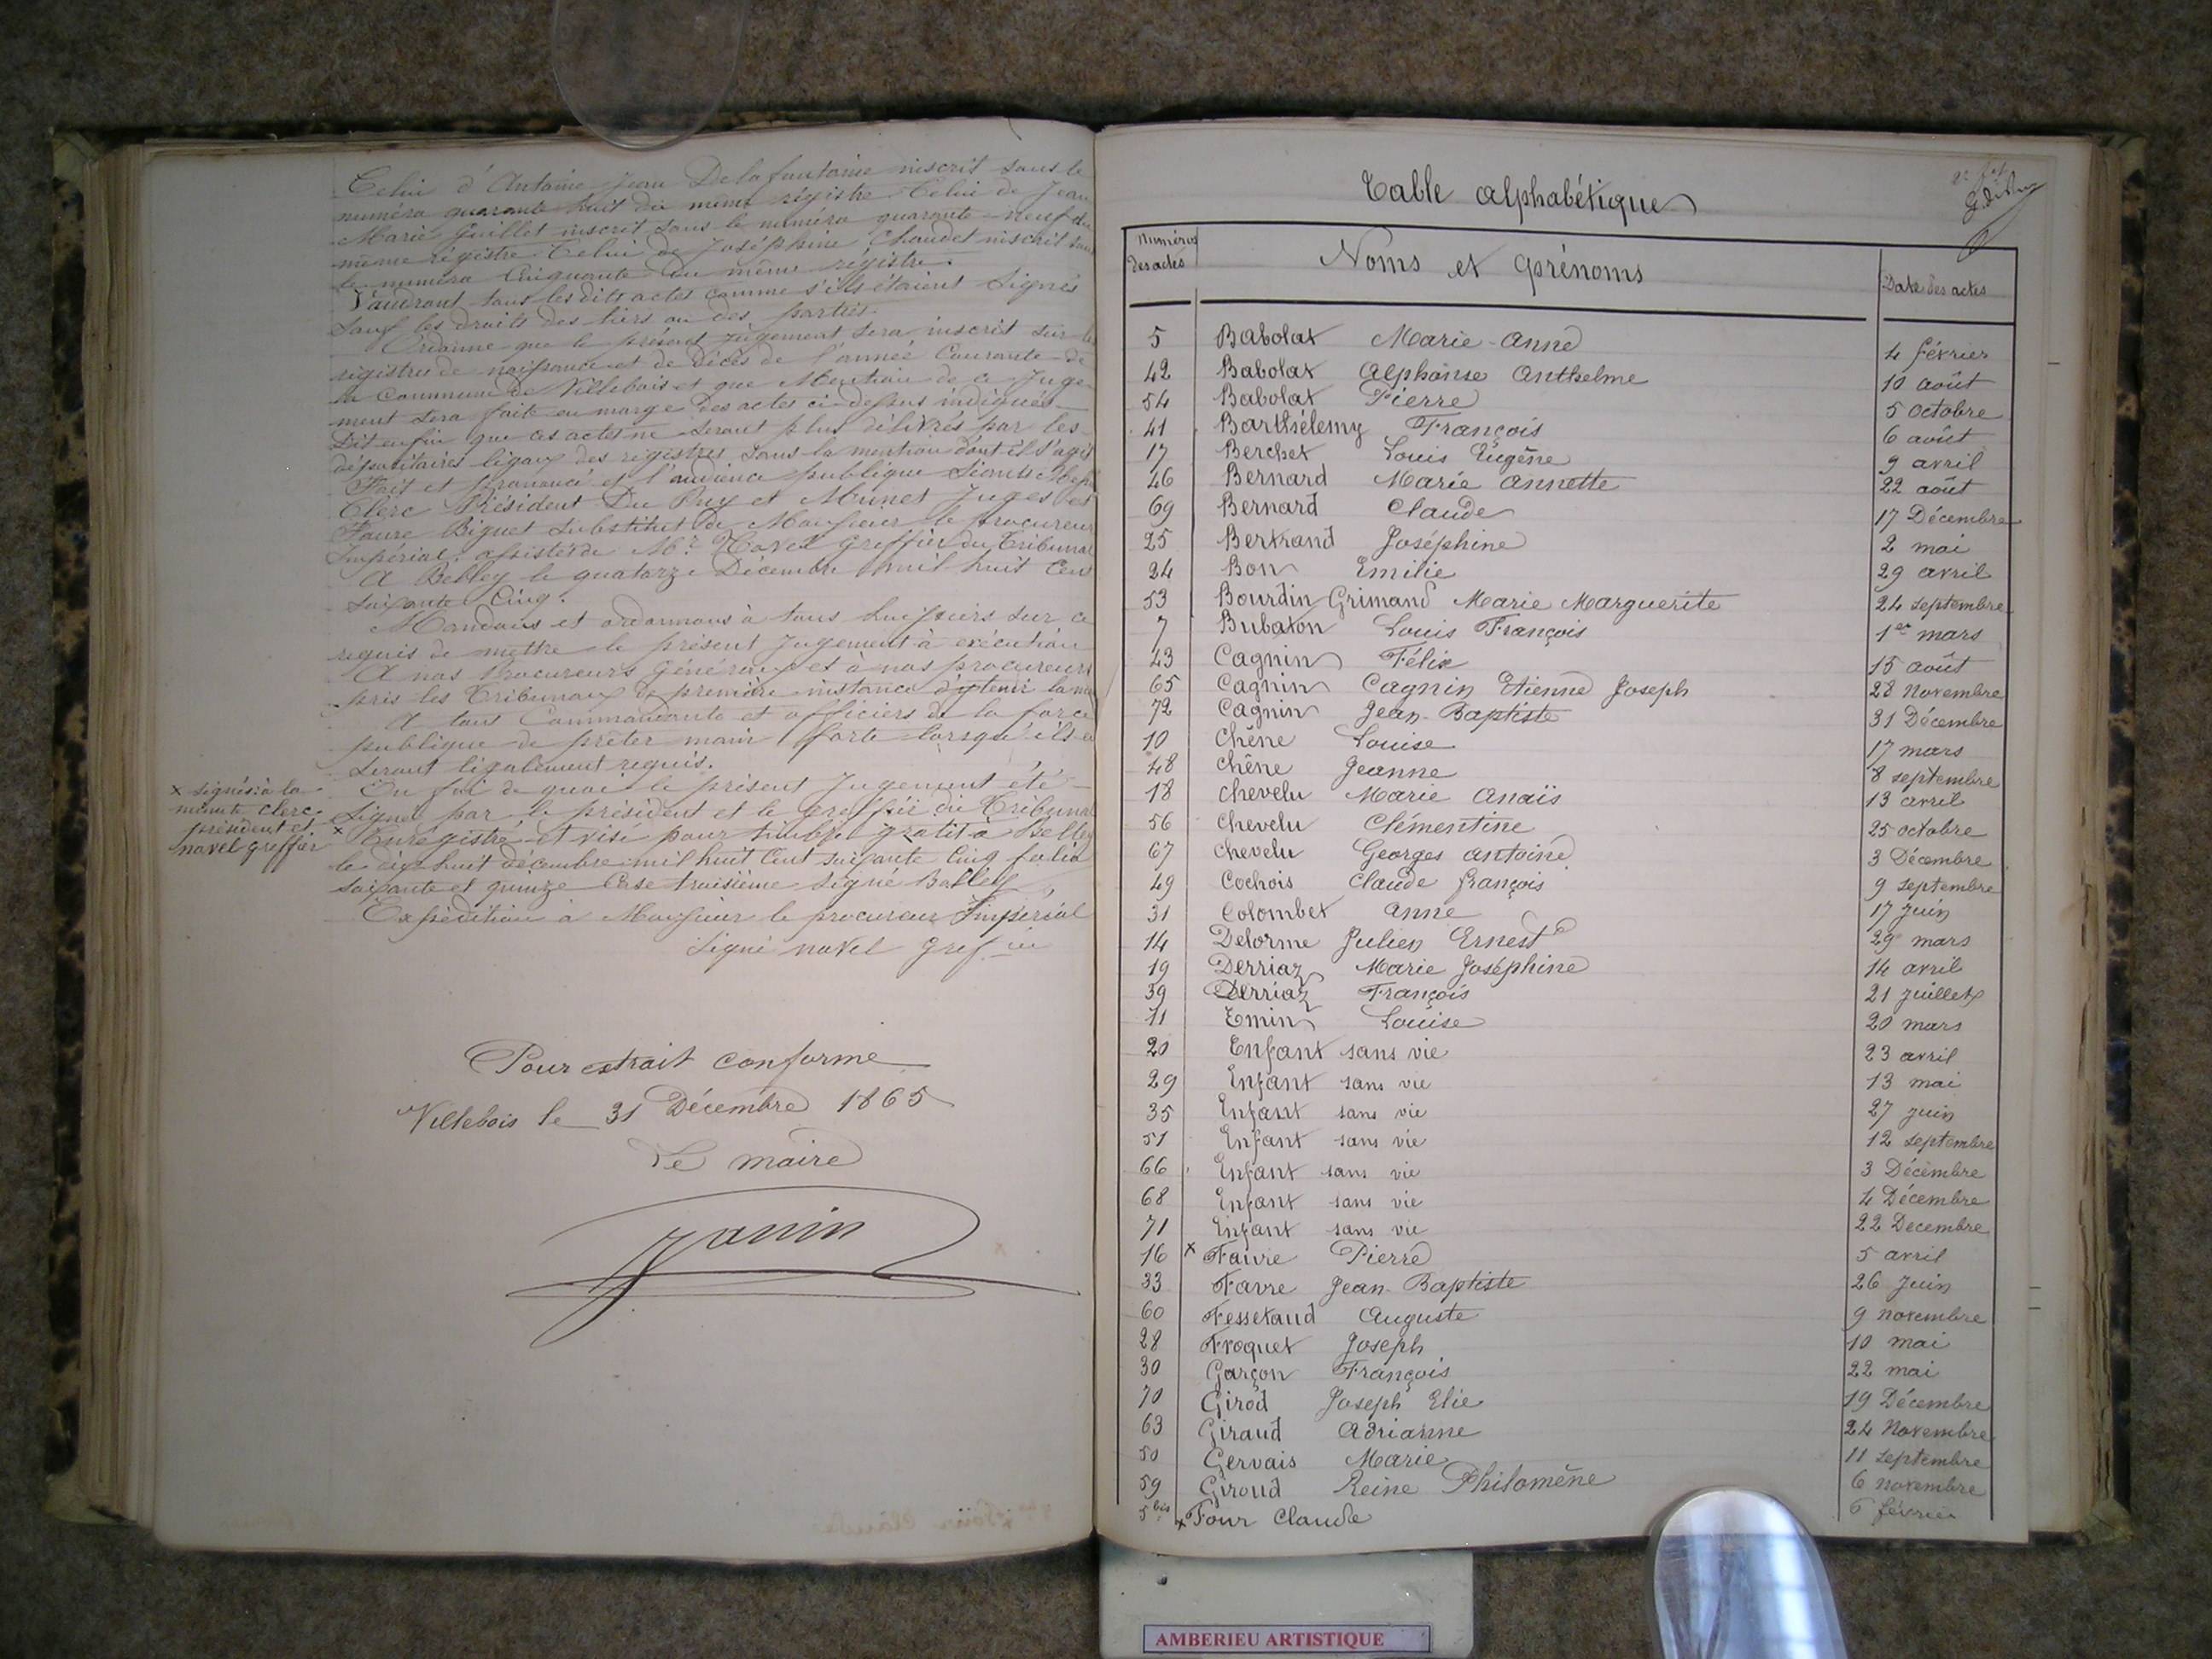 Celui d'Antoine Jean Delafontaine inscrit sous le
numéro quarante huit du même régistre. Celui de Jean
Marie Guillet inscrit sous le numéro quarante-neuf du
même régistre Celui de Joséphine Chaudet inscrit sous
le numéro Cinquante du même régistre.
Vaudront tous les dits actes comme s'ils étaient Signés
Sauf les droits des tiers ou des parties.
Ordonne que le présent Jugement sera inscrit sur les
registres de naissance et de Décès de l'année Courante de
la Commune de Villebois et que Mention de ce Juge
ment sera faite en marge des actes ci-dessus indiqués
Dit enfin que ces actes ne seront plus délivrés par les
dépositaires légaux des registres sans la mention dont il s'agit
Fait et prononcé et l'audience publique
Clerc Président Du Puy et Munet Juges et
Faure Biguet Substitut de Monsieur le procureur
Impérial, assistés de Mr Navel Greffier du Tribunal
A Belley le quatorze Décembre mil huit Cent
soixante Cinq.
Mandons et ordonnons à tous huissiers sur ce
requis de mettre le présent Jugement à exécution
A nos Procureurs Généraux et à nos procureurs
près les Tribunaux de première instance d'y tenir la main
A tous Commandants et officiers de la force
publique de prêter main forte lorsqu'ils en
seront légalement requis.
En foi de quoi le présent Jugement été
Signé par le président et le greffier du Tribunal
x signés à la
minute Clerc
président et
navel greffier
x Enrégistré et visé pour timbre gratis à Belley
le dix huit décembre mil huit Cent soixante Cinq folio
soixante et quinze Case troisième signé Balley
Expédition à Monsieur le procureur Impérial
Signé navel greffier
Pour extrait conforme
Villebois le 31 Décembre 1865
Le maire
Janin
Table alphabétique
Numéros des actes Noms et prénoms Date des actes
5 Babolat Marie-Anne 4 février
42 Babolat Alphonse Anthelme 10 août
54 Babolat Pierre 5 octobre
41 Barthélemy François 6 août
17 Berchet Louis Eugène 9 avril
46 Bernard Marie Annette 22 août
69 Bernard Claude 17 Décembre
25 Bertrand Joséphine 2 mai
24 Bon Emilie 29 avril
53 Bourdin Grimand Marie Marguerite 24 septembre
7 Bubaton Louis François 1er mars
43 Cagnin Félix 15 août
65 Cagnin Cagnin Etienne Joseph 28 Novembre
72 Cagnin Jean-Baptiste 31 Décembre
10 Chêne Louise 17 mars
48 Chêne Jeanne 8 septembre
18 Chevelu Marie Anaïs 13 avril
56 Chevelu Clémentine 25 octobre
67 Chevelu Georges Antoine 3 Décembre
49 Cochois Claude François 9 septembre
31 Colombet Anne 17 Juin
14 Delorme Julien Ernest 29 mars
19 Derriaz Marie Joséphine 14 avril
39 Derriaz François 21 Juillet
11 Emin Louise 20 mars
20 Enfant sans vie 23 avril
29 Enfant sans vie 13 mai
35 Enfant sans vie 27 juin
51 Enfant sans vie 12 septembre
66 Enfant sans vie 3 Décembre
68 Enfant sans vie 4 Décembre
71 Enfant sans vie 22 Décembre
16 x Faivre Pierre 5 avril
33 Favre Jean-Baptiste 26 Juin
60 Fessetaud Auguste 9 novembre
28 Froquet Joseph 10 mai
30 Garçon François 22 mai
70 Girod Joseph Elie 19 Décembre
63 Giraud Adrianne 24 Novembre
50 Gervais Marie 11 septembre
59 Giroud Reine Philomène 6 novembre
5bis x Four Claude 6 février
AMBERIEU ARTISTIQUE